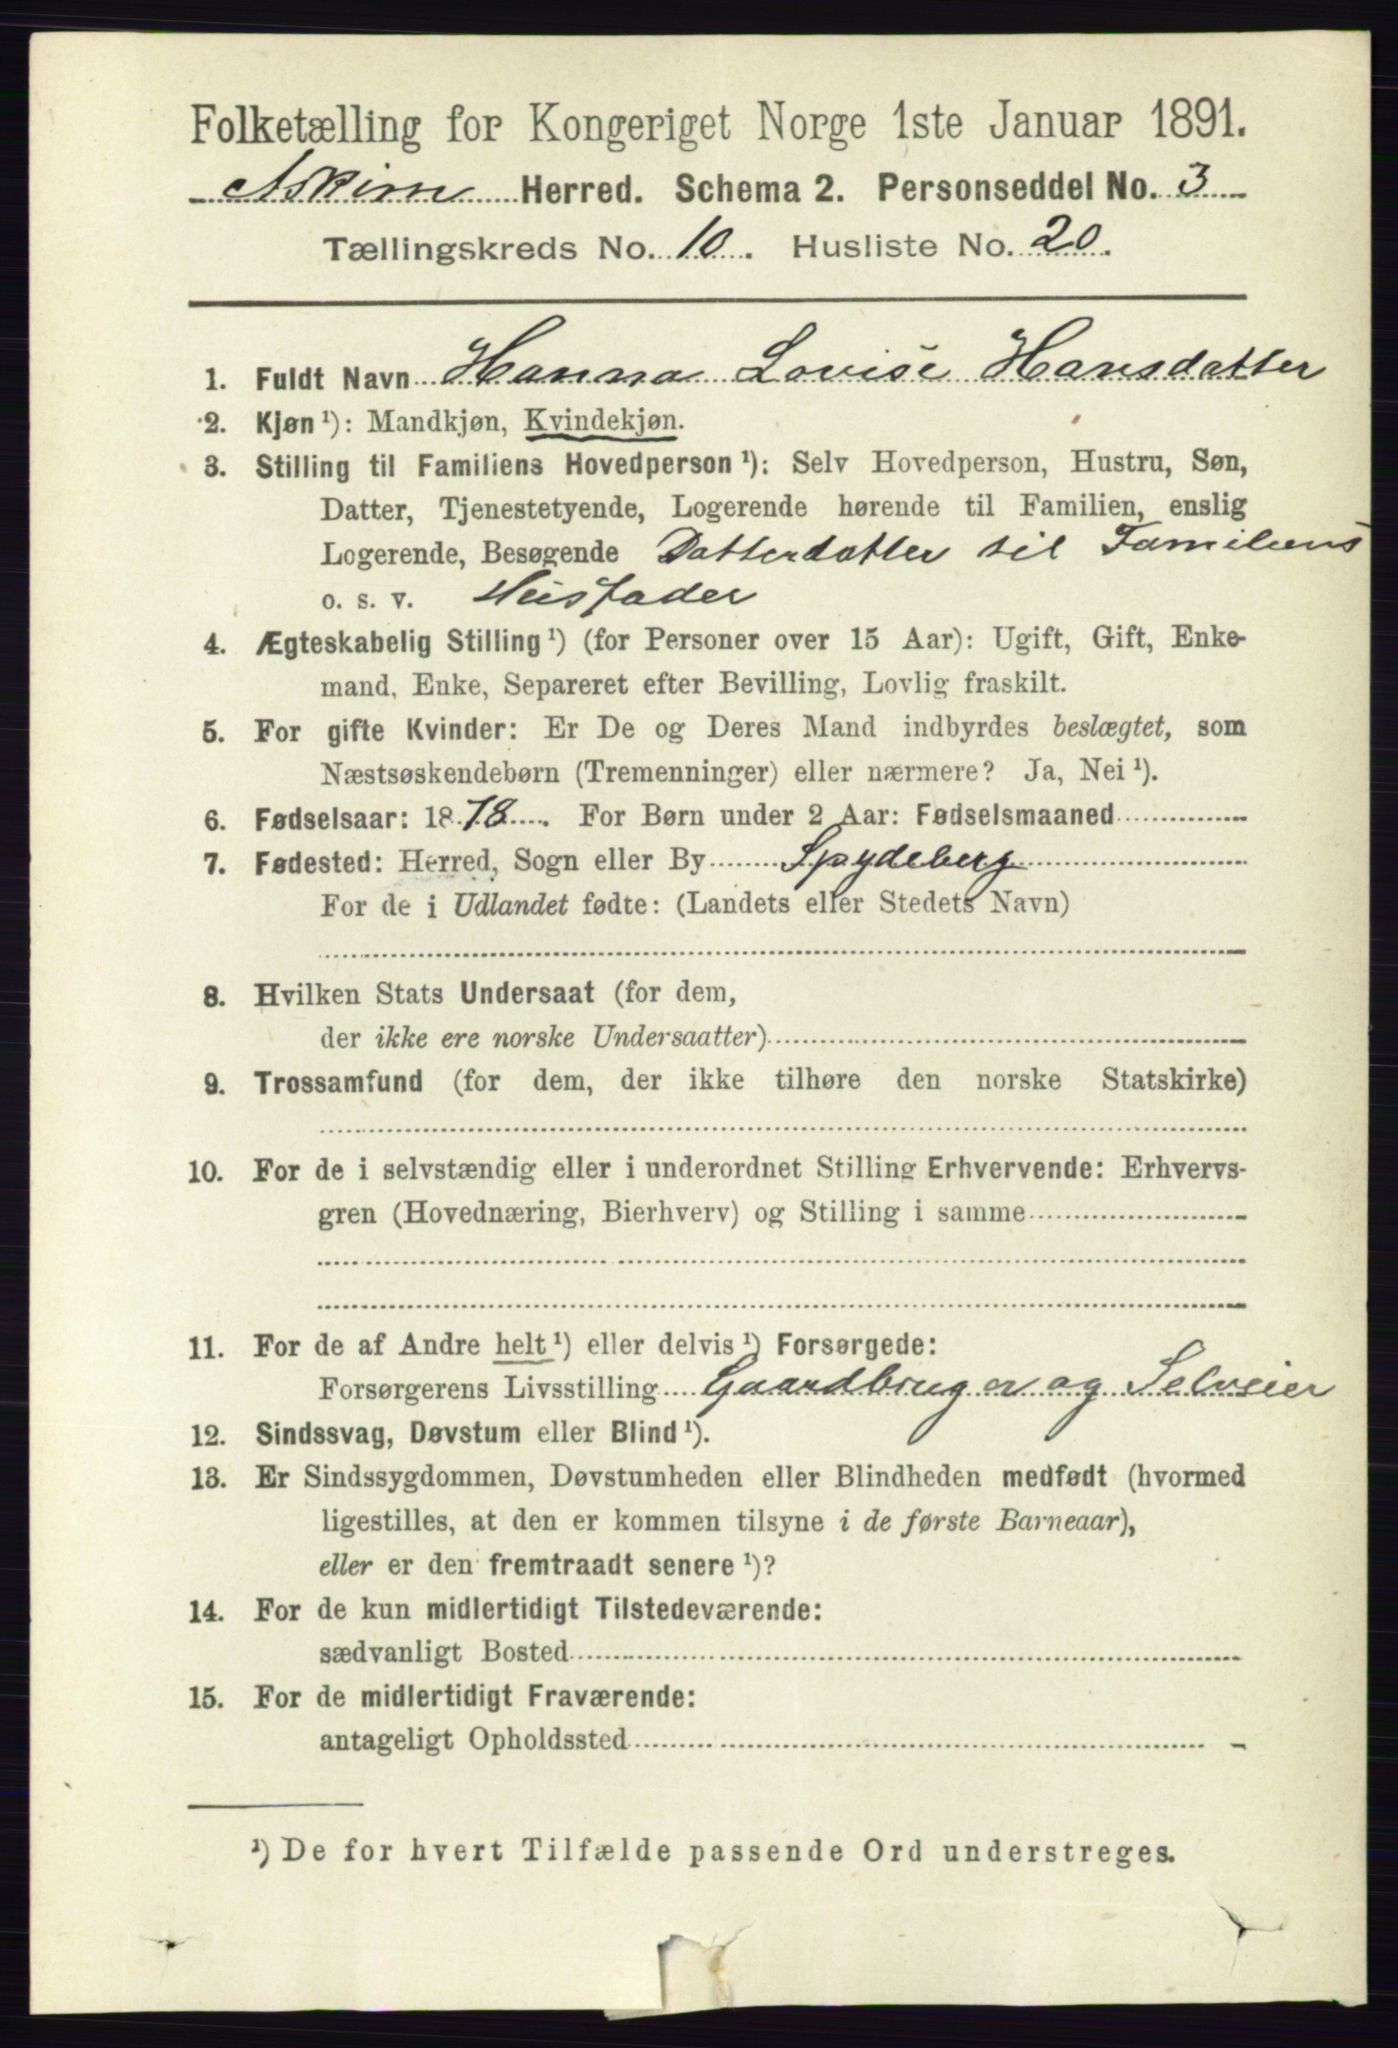 Folketælling for Kongeriget Norge 1ste Januar 1891.
Askim Herred. Schema 2. Personseddel No. 3
Tællingskreds No. 10. Husliste No. 20.
1. Fuldt Navn Hanna Lovise Hansdatter
2. Kjøn ¹): Mandkjøn, Kvindekjøn.
3. Stilling til Familiens Hovedperson ¹): Selv Hovedperson, Hustru, Søn,
Datter, Tjenestetyende, Logerende hørende til Familien, enslig
Logerende, Besøgende Datterdatter til Familiens
o. s. v. Huusfader
4. Ægteskabelig Stilling ¹) (for Personer over 15 Aar): Ugift, Gift, Enke-
mand, Enke, Separeret efter Bevilling, Lovlig fraskilt.
5. For gifte Kvinder: Er De og Deres Mand indbyrdes beslægtet, som
Næstsøskendebørn (Tremenninger) eller nærmere? Ja, Nei ¹).
6. Fødselsaar: 1878. For Børn under 2 Aar: Fødselsmaaned
7. Fødested: Herred, Sogn eller By Spydeberg
For de i Udlandet fødte: (Landets eller Stedets Navn)
8. Hvilken Stats Undersaat (for dem,
der ikke ere norske Undersaatter)
9. Trossamfund (for dem, der ikke tilhøre den norske Statskirke)
10. For de i selvstændig eller i underordnet Stilling Erhvervende: Erhvervs-
gren (Hovednæring, Bierhverv) og Stilling i samme
11. For de af Andre helt ¹) eller delvis ¹) Forsørgede:
Forsørgerens Livsstilling Gaardbruger og Selveier
12. Sindssvag, Døvstum eller Blind ¹).
13. Er Sindssygdommen, Døvstumheden eller Blindheden medfødt (hvormed
ligestilles, at den er kommen tilsyne i de første Barneaar),
eller er den fremtraadt senere ¹)?
14. For de kun midlertidigt Tilstedeværende:
sædvanligt Bosted
15. For de midlertidigt Fraværende:
antageligt Opholdssted
¹) De for hvert Tilfælde passende Ord understreges.